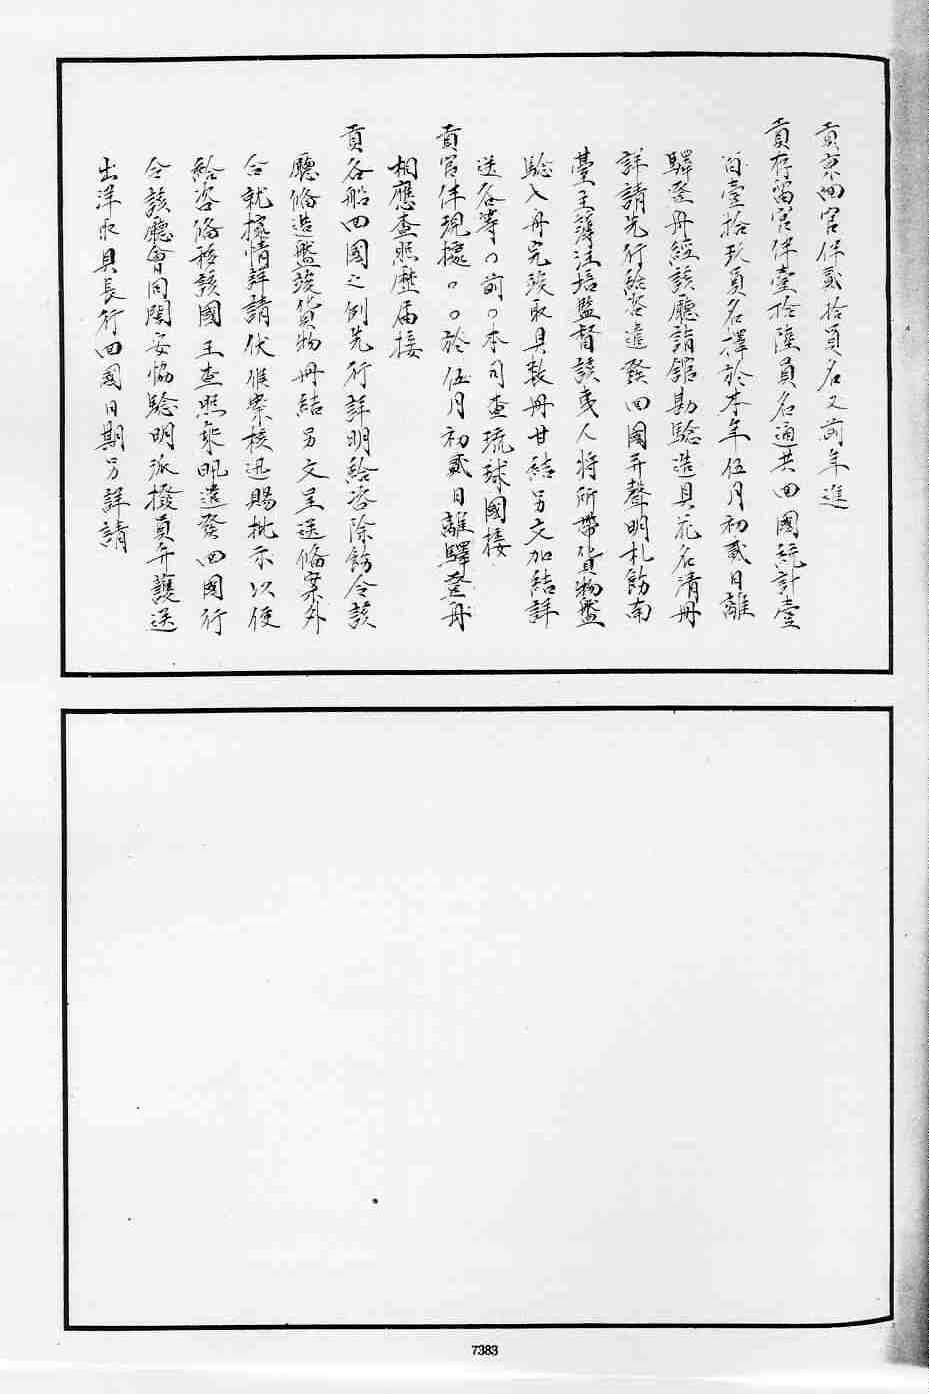 貢京回官伴貳拾員名又前年進
貢存留官伴壹拾陸員名通共回國統計壹
百壹拾玖員名擇於本年伍月初貳日離
驛登舟經該廳詣館勘驗造具花名清冊
詳請先行給咨遣發回國并聲明札飭南
臺主簿汪培監督該夷人將所帶貨物盤
驗入舟完竣取具數冊甘結另文加結詳
送各等〇前〇本司查琉球國接
貢官伴現據〇〇於伍月初貳日離驛登舟
相應查照歷届接
貢各船回國之例先行詳明給咨除飭令該
廳俻造盤驗貨物冊結另文呈送俻案外
合就據情詳請伏候察核迅賜批示以便
給咨俻移該國王查照來吼遣發回國行
令該廳會同閩安協驗明派撥員弁護送
出洋取具長行回國日期另詳請
7383